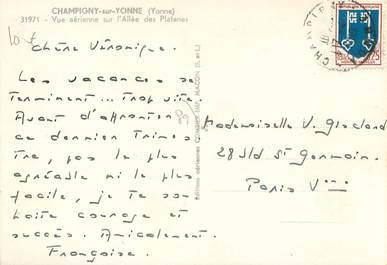 CHAMPIGNY-sur-YONNE (Yonne)
31971 - Vue aérienne sur l'Allée des Platanes
Chère Véronique.
Les vacances se
terminent... Trop vite.
Avant d'affronter
ce dernier trimes
tre, pas le plus
agréable ni le plus
facile, je te sou
haite courage et
succès. Amicalement.
Françoise.
Mademoiselle V.
28 Bld St Germain.
Paris Vème
Editions aériennes COMBIER IMP. MACON (S.-et-L.)